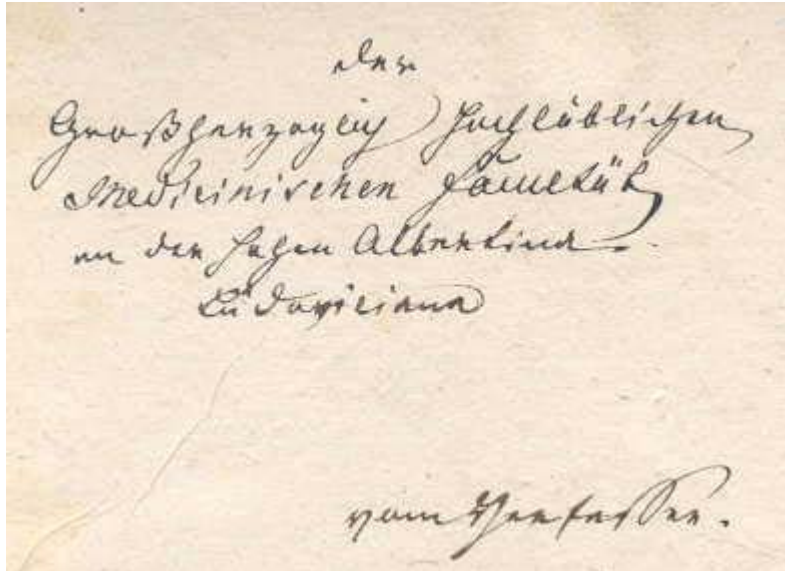 Der
Großherzoglich Hochlöblichen
Medicinischen Facultät
an der hohen Albertina
Ludoviciana
vom Verfasser.